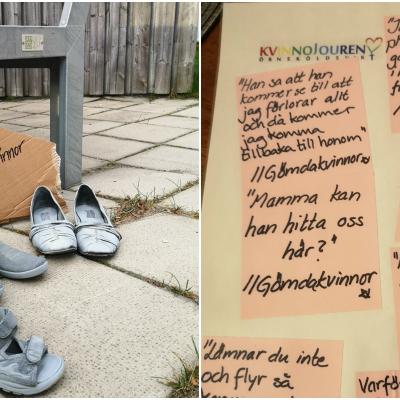 nnor
KVINNOJOUREN
ÖRNSKÖLDSVIK
"Han sa att han
kommer se till att
jag förlorar allt
och då kommer
jag komma
tillbaka till honom"
//Gömdakvinnor
"Mamma kan
han hitta oss
här?"
//Gömdakvinnor
"Lämnar du inte
och flyr så
Varför